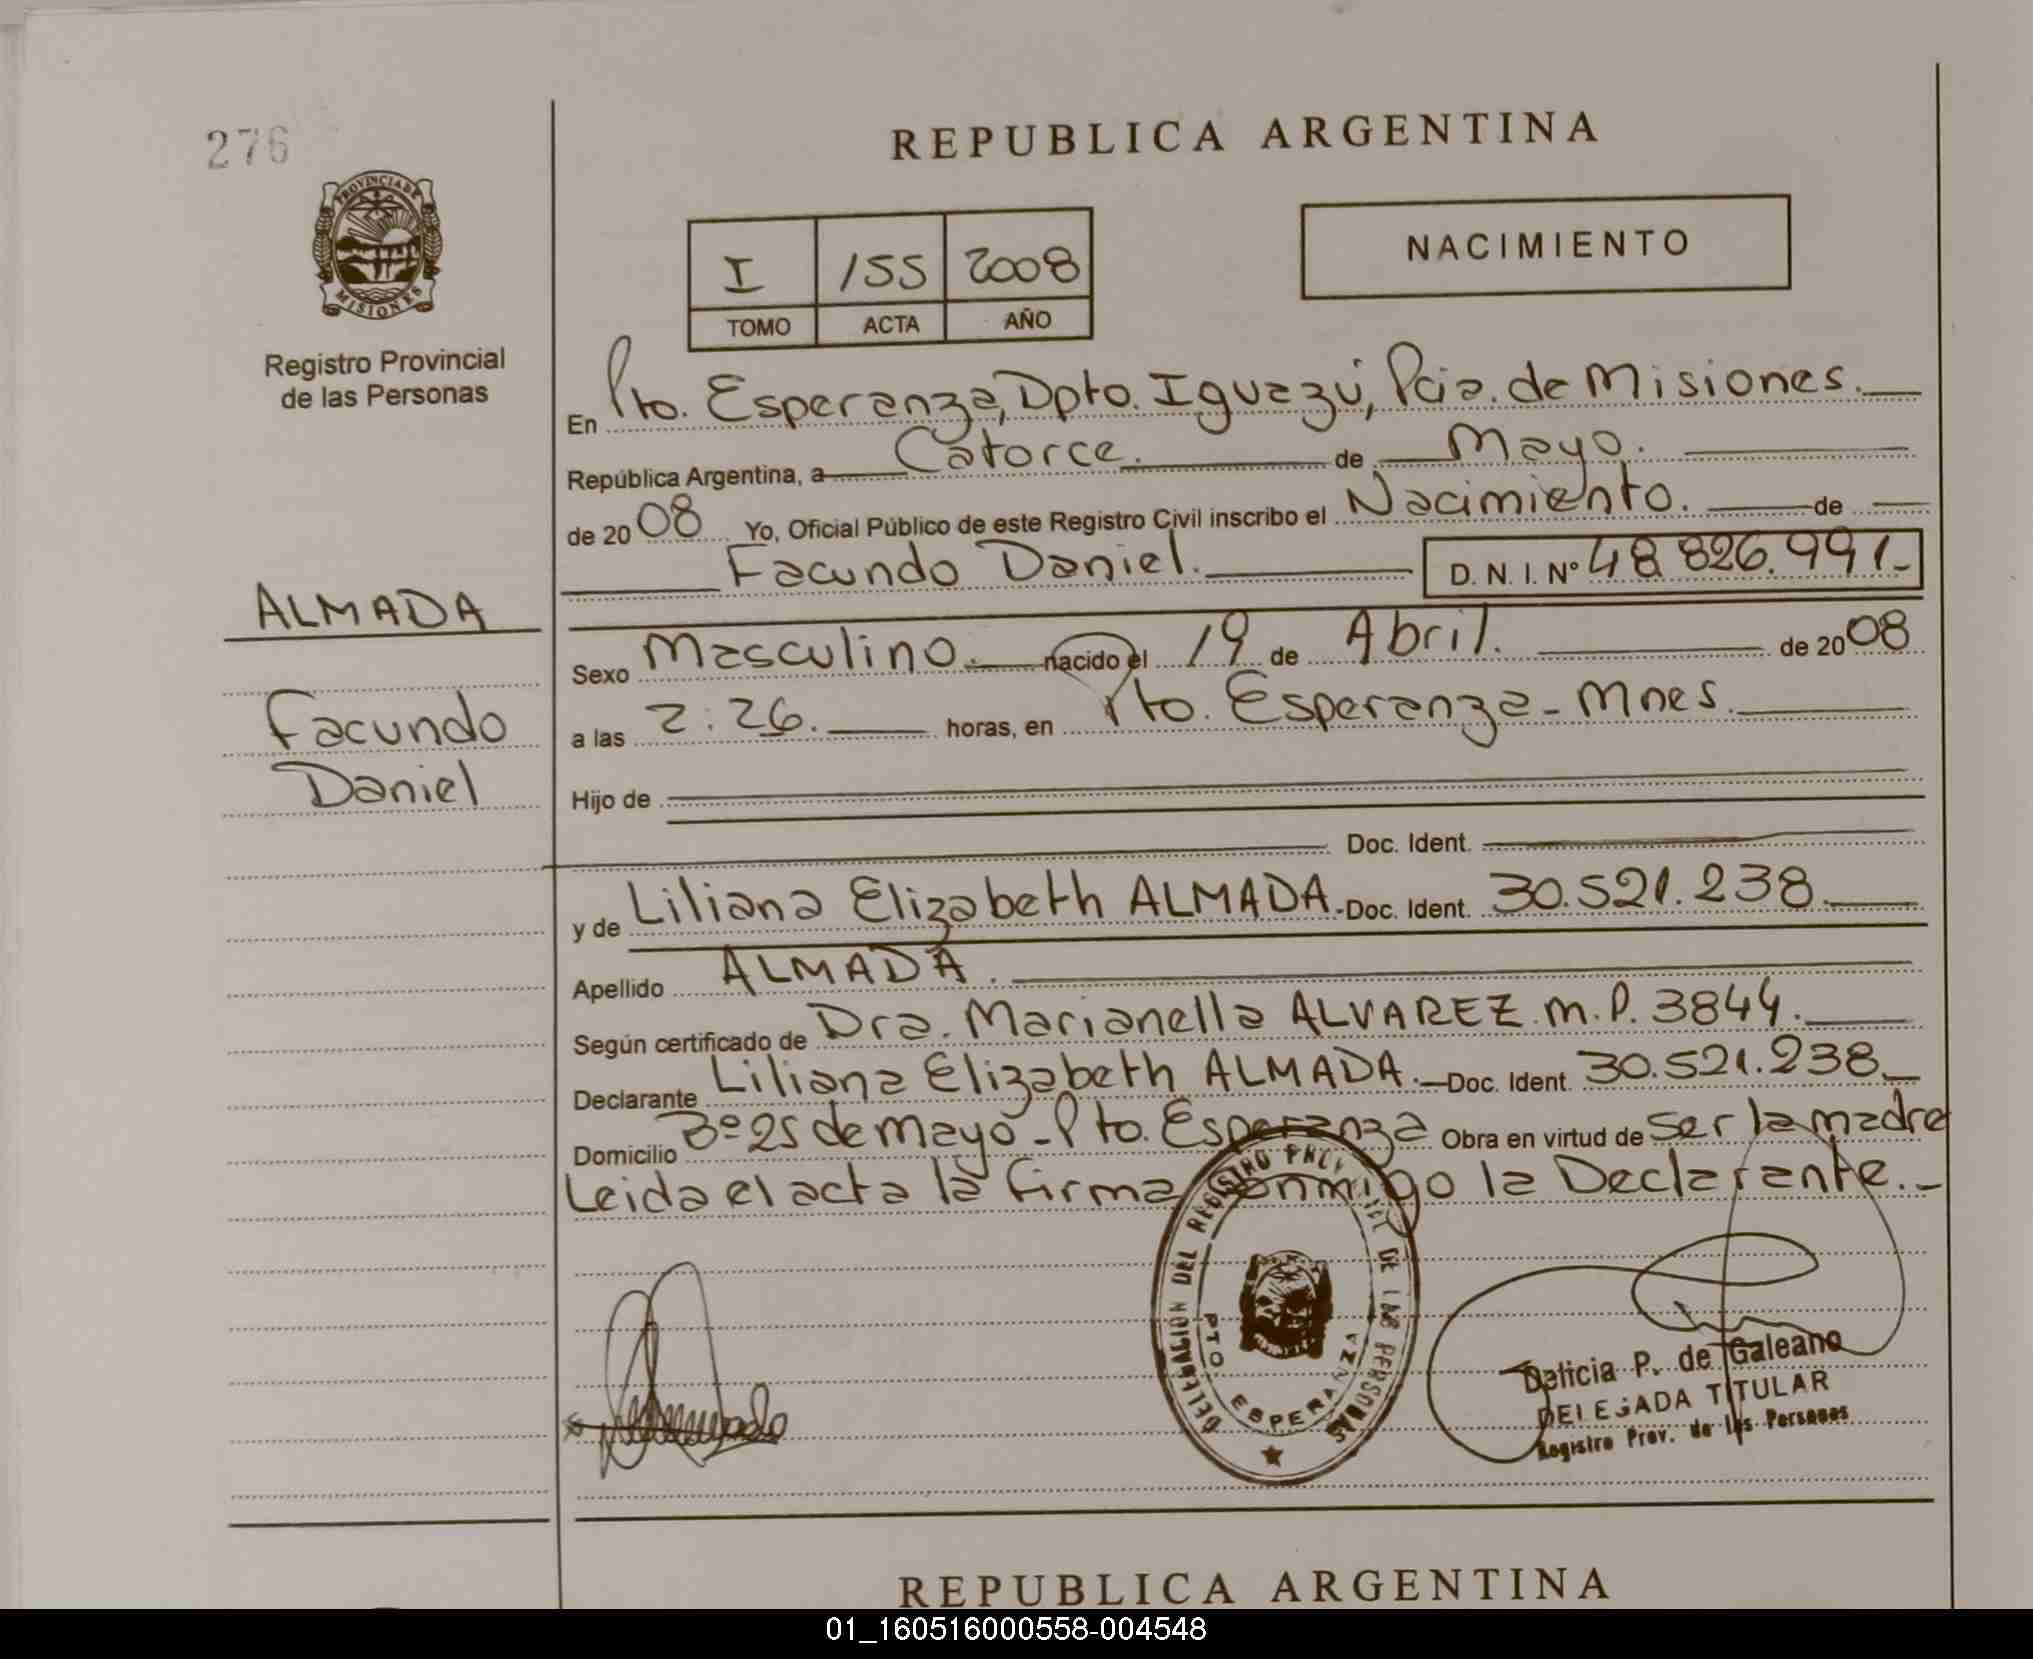 276
REPUBLICA ARGENTINA
PROVINCIA DE
MISIONES
Registro Provincial
de las Personas
I 155 2008
TOMO ACTA AÑO
NACIMIENTO
En Pto. Esperanza, Dpto. Iguazú, Pcia. de Misiones.
República Argentina, a Catorce. de Mayo.
de 2008 Yo, Oficial Público de este Registro Civil inscribo el Nacimiento. de
Facundo Daniel. D. N. I. Nº 48.826.991.-
ALMADA
Facundo
Daniel
Sexo Masculino. nacido el 19 de Abril. de 2008
a las 2:26. horas, en Pto. Esperanza - Mnes.
Hijo de
Doc. Ident.
y de Liliana Elizabeth ALMADA.- Doc. Ident. 30.521.238.
Apellido ALMADA.
Según certificado de Dra. Marianella ALVAREZ. M.P. 3844.
Declarante Liliana Elizabeth ALMADA.- Doc. Ident. 30.521.238
Domicilio Bº 25 de mayo - Pto. Esperanza Obra en virtud de ser la madre
Leida el acta la firma conmigo la Declarante.-
DELEGACION DEL REGISTRO PROVINCIAL DE LAS PERSONAS
PTO ESPERANZA
Delicia P. de Galeano
DELEGADA TITULAR
Registro Prov. de las Personas
REPUBLICA ARGENTINA
01_160516000558-004548